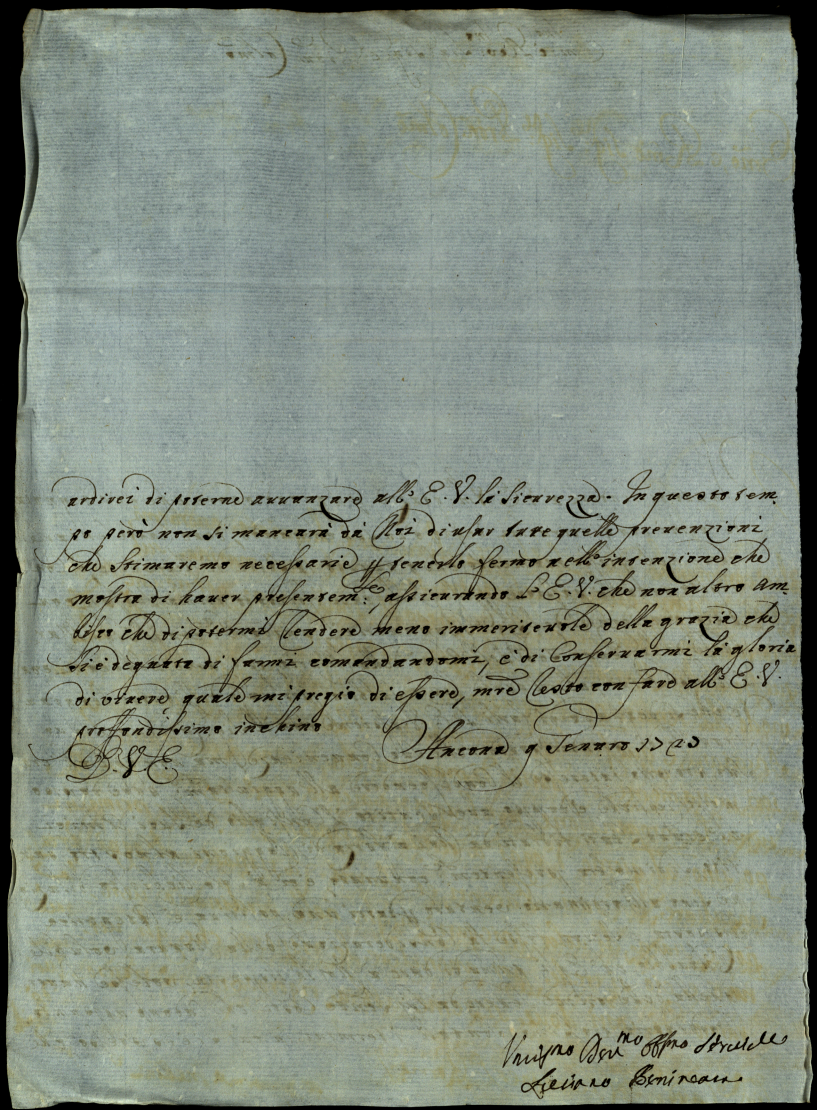 ardirei di poterne avvanzare all' E. V. la sicurezza. In questo tem-
po però non si mancarà da Noi di usar tutte quelle prevenzioni
che stimaremo necessarie p tenerlo fermo nell' intenzione che
mostra di haver presentem.e, assicurando l' E. V. che non altro am-
bisco che di potermi rendere meno immeritevole della grazia che
si è degnata di farmi comandandomi, e di conservarmi la gloria
di vivere quale mi pregio di essere, mre resto con fare all' E. V.
proffondissimo inchino
D. V. E. Ancona 9 Genaro 1723
Umilmo Devmo Obbmo Servitore
Benincasa